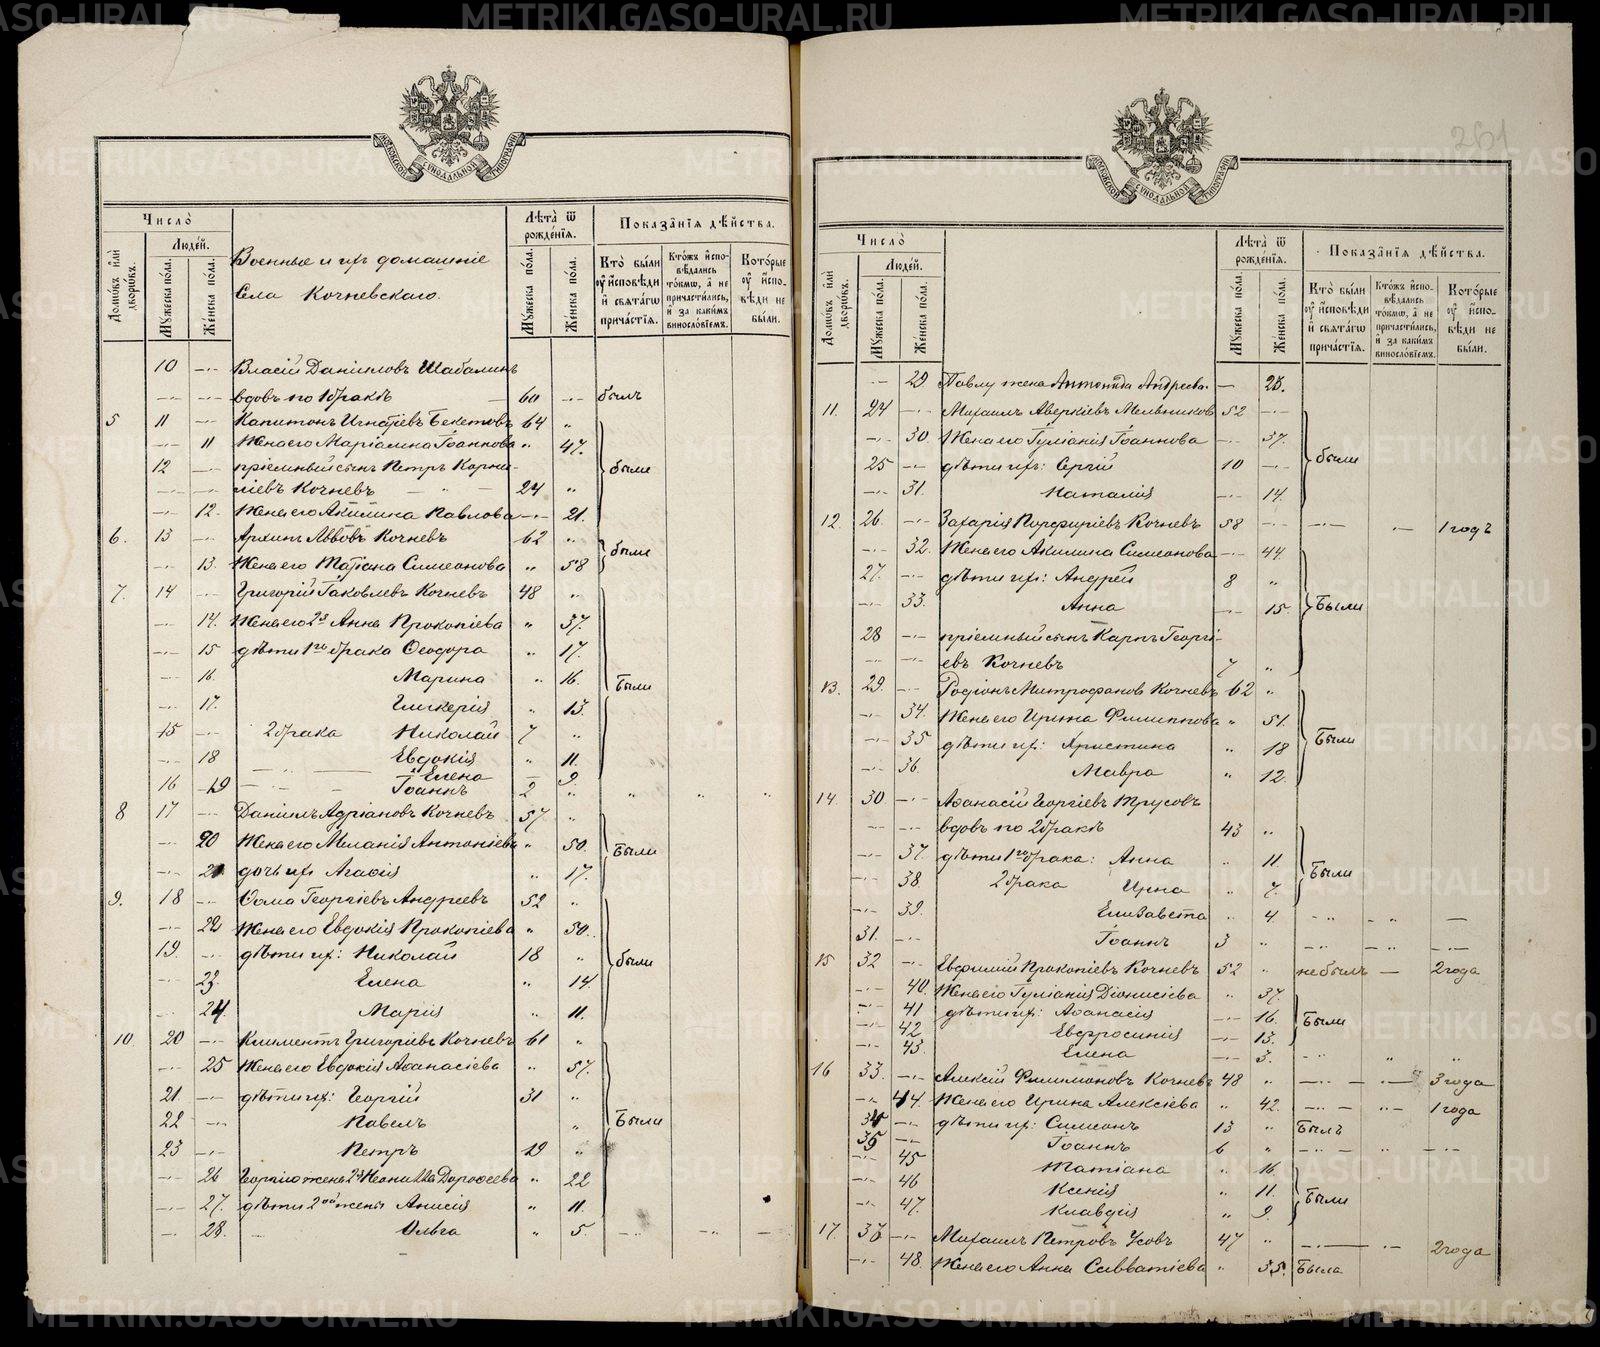 METRIKI.GASO-URAL.RU
МОСКОВСКОЙ СѴНОДАЛЬНОЙ ТИПОГРАФІИ
Число̀
Домѡ́въ и҆лѝ дворѡ́въ.
Люде́й.
Мꙋ́жеска по́ла.
Же́нска по́ла.
Военные и ихъ домашніе
Села Кочневскаго.
Лѣта̀ ѿ рожде́нїя.
Мꙋ́жеска по́ла.
Же́нска по́ла.
Показа̑нїѧ дѣ́йства.
Кто̀ бы́ли ᲂу҆ и҆сповѣди и҆ свѧта́гѡ прича́стїѧ.
Кто́жъ и҆сповѣ́дались то́кмѡ, а҆ не причасти́лись, и҆ за каки́мъ виносло́вїемъ.
Кото́рые ᲂу҆ и҆сповѣди не бы́ли.
10 -"- Власій Даниловъ Шабалинъ
-"- -"- вдовъ по 1 бракѣ 60 -"- былъ
5 11 " Капитонъ Игнатіевъ Бекетовъ 64 "
-"- 11 Жена его Маріамна Іоаннова " 47.
12 -"- пріемный сынъ Петръ Корни-
-"- -"- ліевъ Кочневъ 24 " были
-"- 12. Жена его Акилина Павлова -"- 21.
6. 13 -"- Архипъ Львовъ Кочневъ 62 " были
-"- 13. Жена его Татіана Симеонова " 58
7. 14 -"- Григорій Іаковлевъ Кочневъ 48 "
-"- 14. Жена его 2я Анна Прокопіева " 37.
-"- 15 дѣти 1го брака Ѳеодора " 17.
-"- 16. Марина " 16. Были
-"- 17. Гликерія " 13.
15 -"- 2 брака Николай 7 "
-"- 18 Евдокія " 11.
19 Елена 9.
16 Іоаннъ 2 " " " "
8 17 -"- Даніилъ Адріановъ Кочневъ 57 "
-"- 20 Жена его Меланія Антоніева " 50. Были
-"- 21 дочь ихъ Агаѳія " 17.
9. 18 -"- Ѳома Георгіевъ Андреевъ 52 "
-"- 22 Жена его Евдокія Прокопіева " 50.
19. -"- дѣти ихъ: Николай 18 " были
-"- 23. Елена " 14.
-"- 24. Марія " 11.
10 20 -"- Климентъ Григоріевъ Кочневъ 61 "
-"- 25 Жена его Евдокія Аѳанасіева " 57.
21. -"- дѣти ихъ: Георгій 31 "
22 -"- Павелъ " Были
23 -"- Петръ 19 "
-"- 26 Георгію жена 2я Дороѳеева " 22
-"- 27. дѣти 2ой жены Анисія " 11.
-"- 28. Ольга " 5. -"- -"- -
261
Число̀
Домѡ́въ и҆лѝ дворѡ́въ.
Люде́й.
Мꙋ́жеска по́ла.
Же́нска по́ла.
Лѣта̀ ѿ рожде́нїя.
Мꙋ́жеска по́ла.
Же́нска по́ла.
Показа̑нїѧ дѣ́йства.
Кто̀ бы́ли ᲂу҆ и҆сповѣди и҆ свѧта́гѡ прича́стїѧ.
Кто́жъ и҆сповѣ́дались то́кмѡ, а҆ не причасти́лись, и҆ за каки́мъ виносло́вїемъ.
Кото́рые ᲂу҆ и҆сповѣди не бы́ли.
-"- 29 Павлу жена Антонида Андреева. - 25.
11. 24 -"- Михаилъ Аверкіевъ Мельниковъ 52 -"-
-"- 30. Жена его Іуліанія Іоаннова -"- 37.
25 -"- дѣти ихъ: Сергій 10 -"- были
-"- 31. Наталія -"- 14.
12. 26. -"- Захарія Порфиріевъ Кочневъ 58 -"- -"- -"- 1 годъ
-"- 32. Жена его Акилина Симеонова -"- 44.
27. -"- дѣти ихъ: Андрей 8 "
-"- 33. Анна -"- 15. Были
28 -"- пріемный сынъ Карпъ Георгі-
-"- -"- евъ Кочневъ 7 "
13. 29. -"- Родіонъ Митрофановъ Кочневъ 62 "
-"- 34. Жена его Ирина Филиппова " 51.
-"- 35 дѣти ихъ: Христина " 18 Были
-"- 36. Мавра " 12.
14. 30 -"- Аѳанасій Георгіевъ Трусовъ
-"- -"- вдовъ по 2 бракѣ 43 "
-"- 37. дѣти 1го брака: Анна " 11. Были
-"- 38. 2 брака Ирина " 7.
-"- 39. Елизавета " 4 -"- -"- —
31. -"- Іоаннъ 3 " -"- -"- -"-
15 32 -"- Евфимій Прокопіевъ Кочневъ 52 " не былъ — 2 года
-"- 40. Жена его Іуліанія Діонисіева " 37.
-"- 41 дѣти ихъ: Аѳанасія -"- 16. Были
-"- 42 Евфросинія -"- 13.
-"- 43. Елена -"- 3. -"- " "
16 33. -"- Алексій Филимоновъ Кочневъ 48 " -"- -"- 3 года
-"- 44. Жена его Ирина Алексіева " 42. -"- -"- 1 года
34 -"- дѣти ихъ: Симеонъ 13 " Былъ
35 -"- Іоаннъ 6 " -"- " -"-
-"- 45 Татіана " 16
-"- 46 Ксенія " 11. Были
-"- 47. Клавдія " 9.
17. 36 -"- Михаилъ Петровъ Усовъ 47 " -"- -"- 2 года
-"- 48. Жена его Анна Савватіева " 35. Была